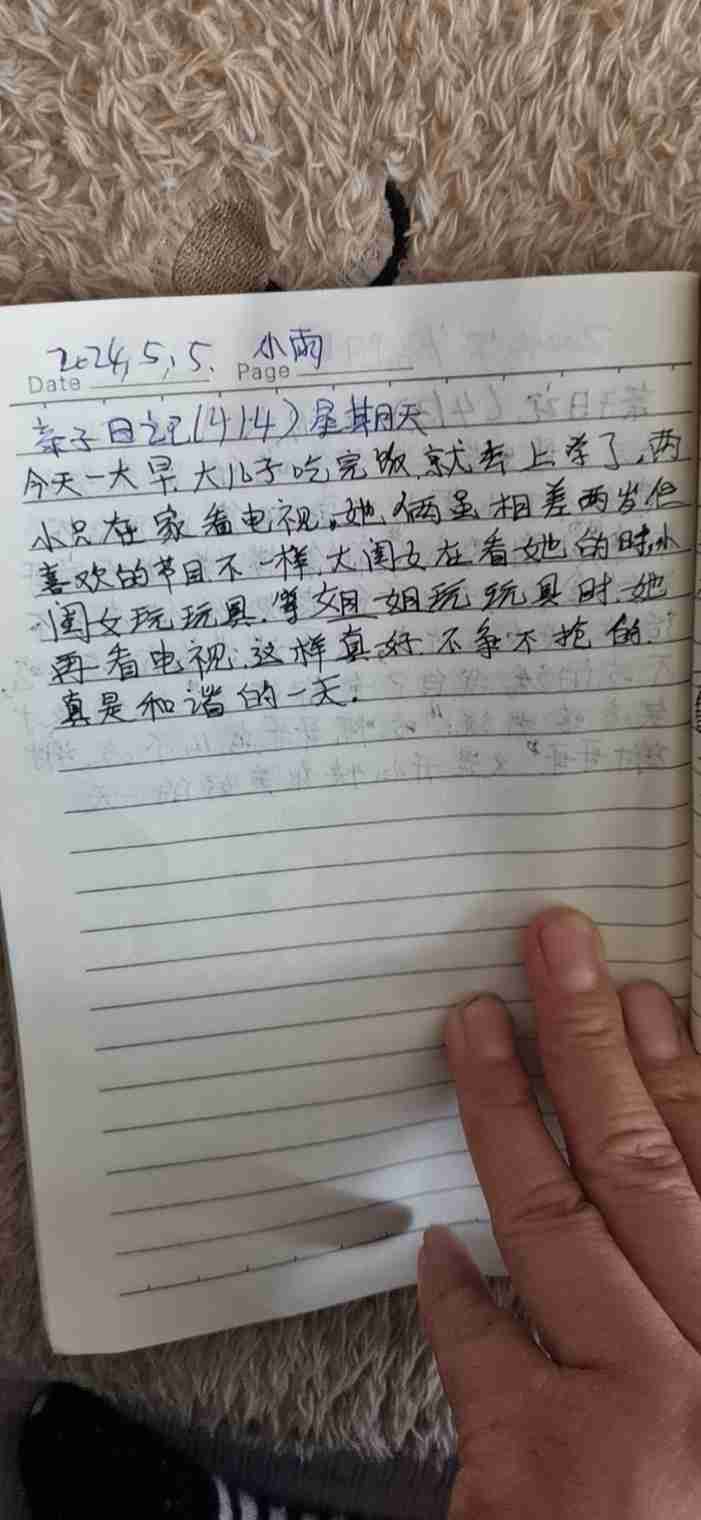 2024,5,5. 小雨
Date Page
亲子日记(414)星期天
今天一大早,大儿子吃完饭,就去上学了,两
小只在家看电视,她俩虽相差两岁但
喜欢的节目不一样,大闺女在看她的时,小
闺女玩玩具,等姐姐玩玩具时,她
再看电视,这样真好,不争不抢的,
真是和谐的一天.